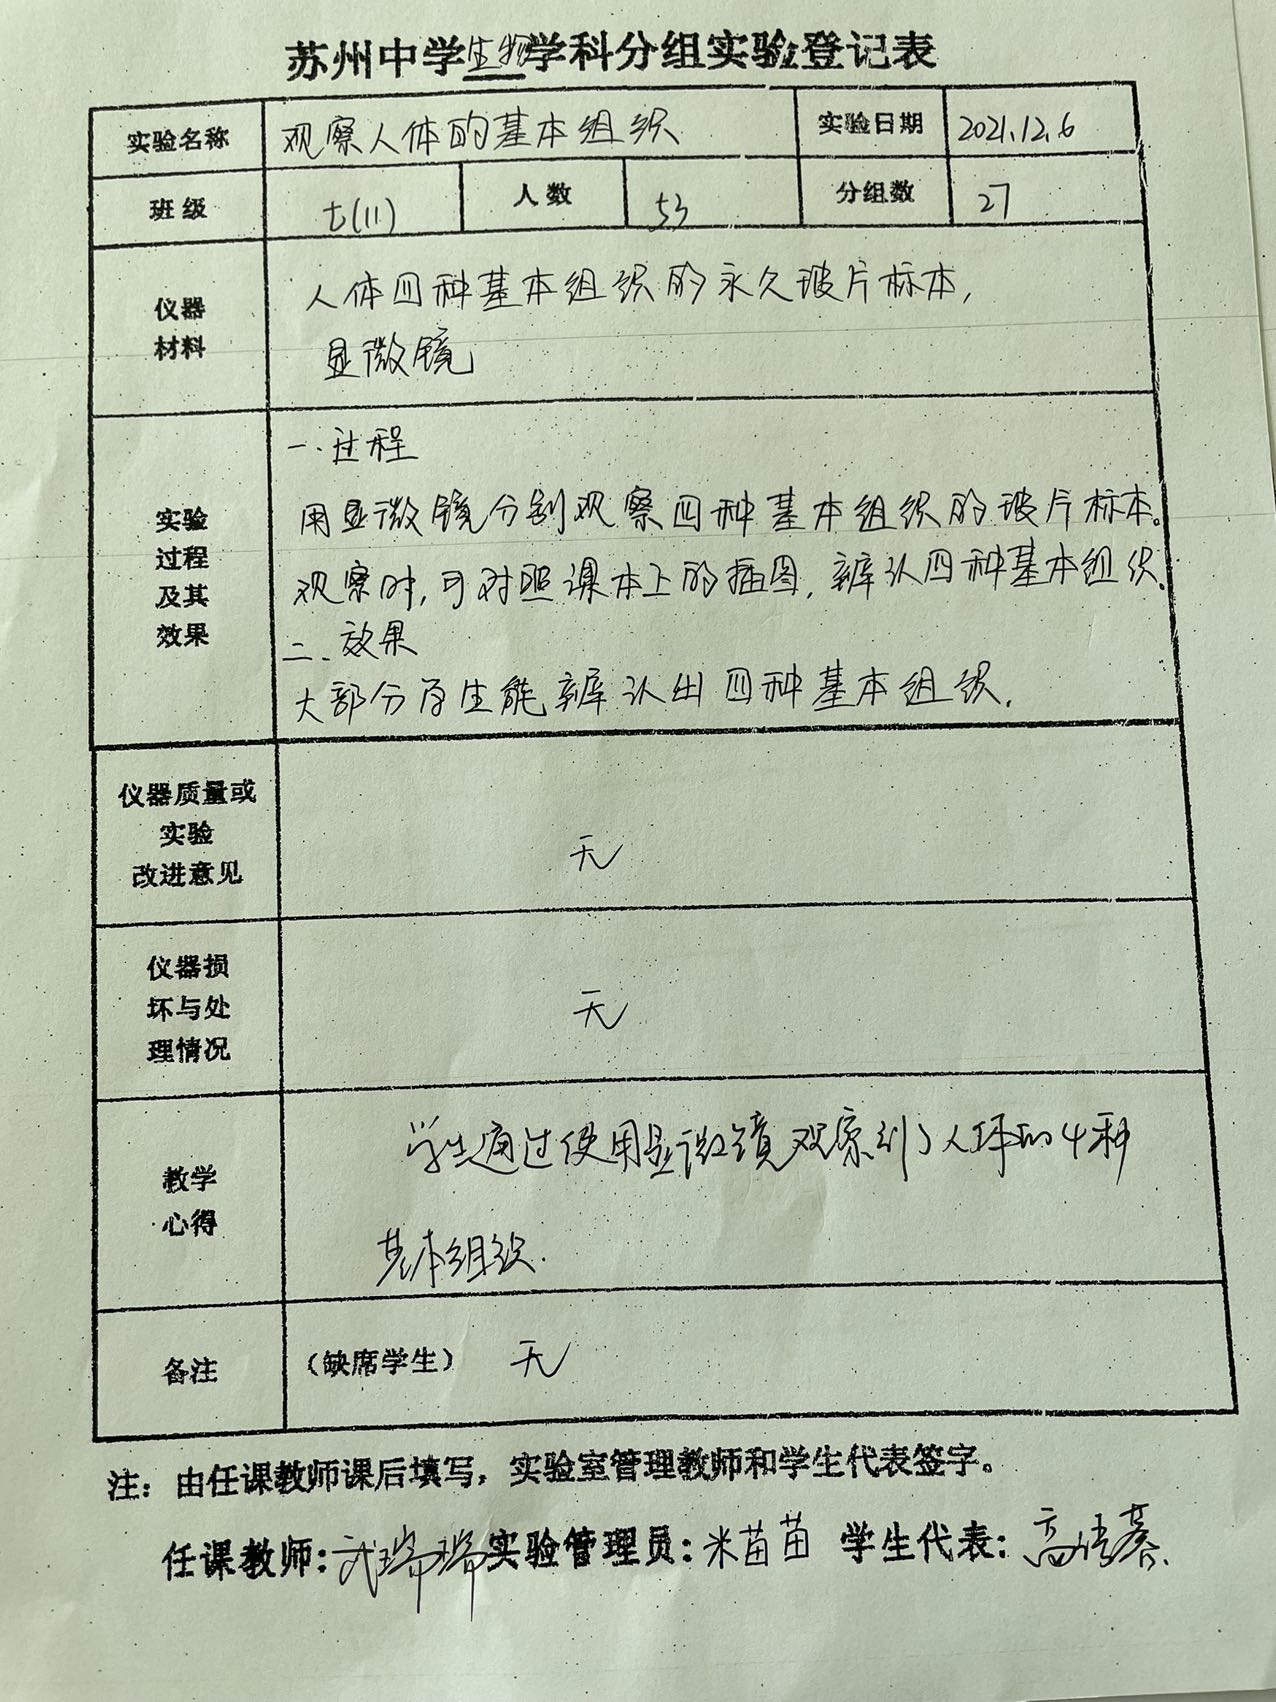 苏州中学生物学科分组实验登记表
实验名称 观察人体的基本组织 实验日期 2021.12.6
班级 七(11) 人数 53 分组数 27
仪器
材料
人体四种基本组织的永久玻片标本,
显微镜
实验
过程
及其
效果
一.过程
用显微镜分别观察四种基本组织的玻片标本。
观察时,可对照课本上的插图,辨认四种基本组织.
二、效果
大部分学生能辨认出四种基本组织.
仪器质量或
实验
改进意见
无
仪器损
坏与处
理情况
无
教学
心得
学生通过使用显微镜观察到了人体的4种
基本组织.
备注 (缺席学生) 无
注：由任课教师课后填写，实验室管理教师和学生代表签字。
任课教师:武瑞瑞 实验管理员:米苗苗 学生代表:高